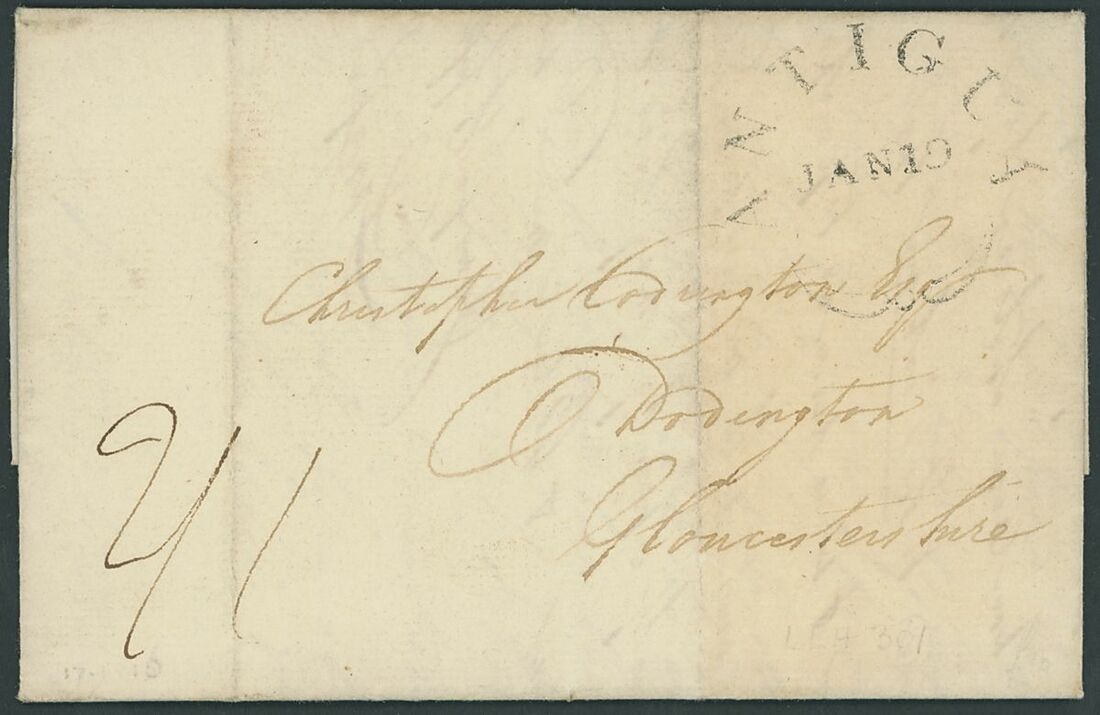 ANTIGUA
JAN 19
Christopher Codrington Esqr
Dodington
Gloucestershire
2/1